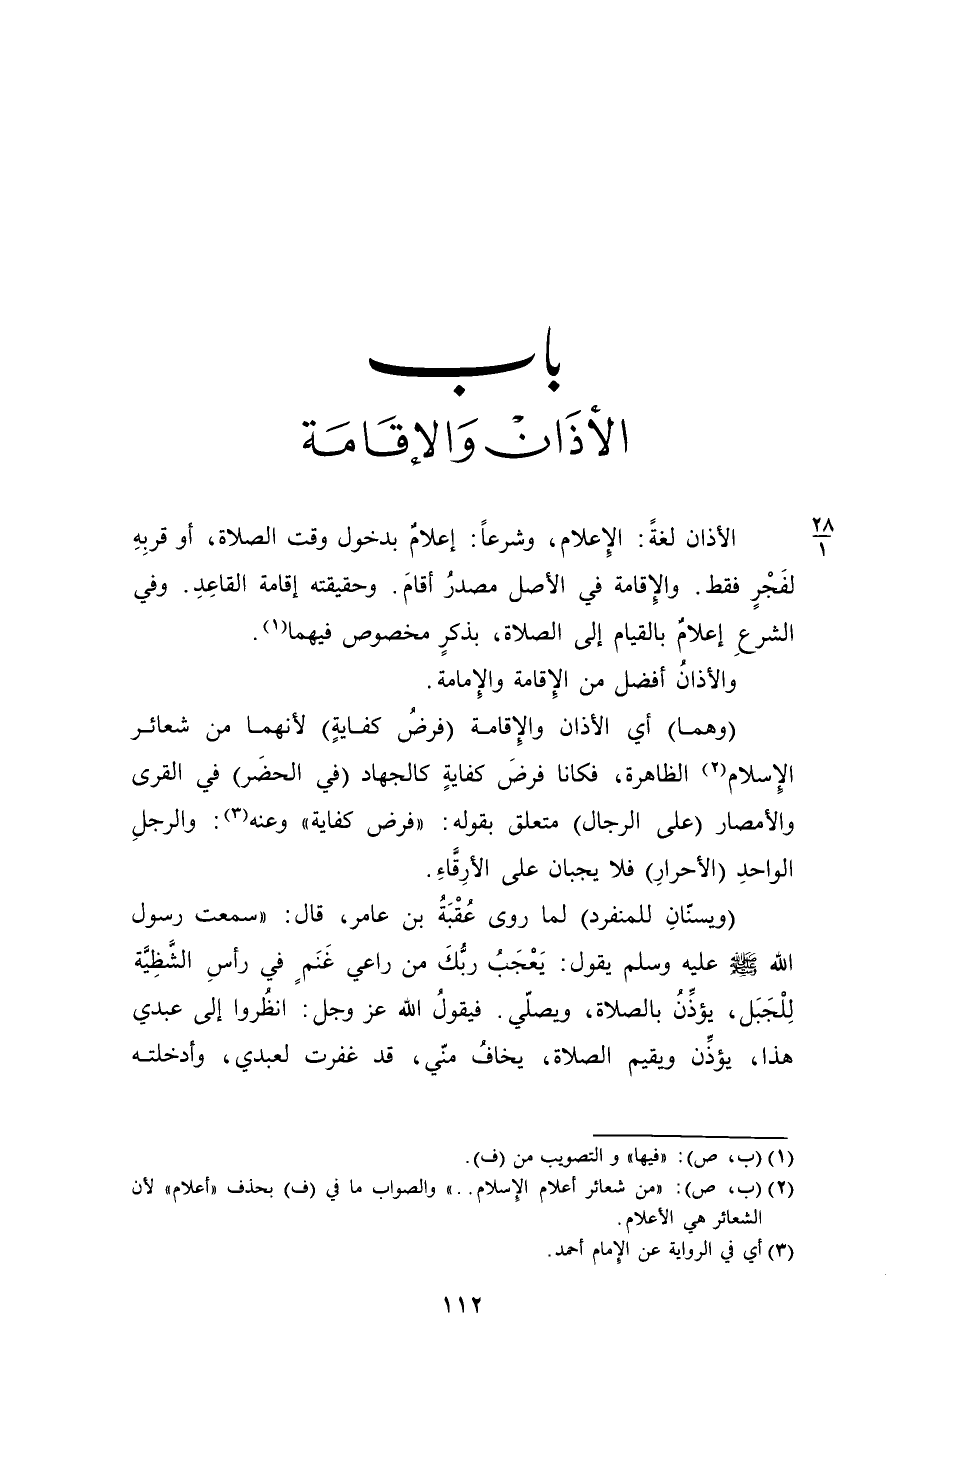 باب
الأَذَانْ وَالإقَامَة
٢٨
١
الأذان لغةً: الإِعلام، وشرعاً: إعلامٌ بدخول وقت الصلاة، أو قربِهِ
لفَجْرٍ فقط. والإِقامة في الأصل مصدرُ أقامَ. وحقيقته إقامة القاعِدِ. وفي
الشرعِ إعلامٌ بالقيام إلى الصلاة، بذكرٍ مخصوص فيهما(١).
والأذانُ أفضل من الإِقامة والإِمامة.
(وهما) أي الأذان والإِقامة (فرضُ كفايةٍ) لأنهما من شعائر
الإِسلام(٢) الظاهرة، فكانا فرضَ كفايةٍ كالجهاد (في الحضَر) في القرى
والأمصار (على الرجال) متعلق بقوله: «فرض كفاية» وعنه(٣): والرجلِ
الواحدِ (الأحرارِ) فلا يجبان على الأرِقَّاءِ.
(ويسنّانِ للمنفرد) لما روى عُقْبَةُ بن عامر، قال: «سمعت رسول
الله ﷺ عليه وسلم يقول: يَعْجَبُ ربُّكَ من راعي غَنَمٍ في رأسِ الشَّظِيَّة
لِلْجَبَل، يؤذِّنُ بالصلاة، ويصلّي. فيقولُ الله عز وجل: انظُروا إلى عبدي
هذا، يؤذِّن ويقيم الصلاة، يخافُ منّي، قد غفرت لعبدي، وأدخلته
(١) (ب، ص): «فيها» و التصويب من (ف).
(٢) (ب، ص): «من شعائر أعلام الإِسلام..» والصواب ما في (ف) بحذف «أعلام» لأن
الشعائر هي الأعلام.
(٣) أي في الرواية عن الإِمام أحمد.
١١٢